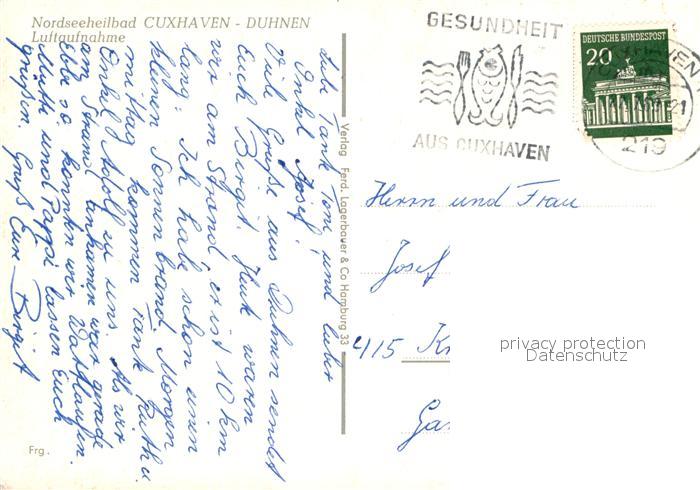 Nordseeheilbad CUXHAVEN - DUHNEN
Luftaufnahme
Liebe Tante Toni und lieber
Onkel Josef!
Viele Grüße aus Duhnen sendet
Euch Birgit. Heut waren
wir am Strand, er ist 10 km
lang. Ich habe schon einen
kleinen Sonnenbrand. Morgen
mittag kommen Tante Ruth u.
Onkel Adolf zu uns. Als wir
am Strand ankamen war grade
Ebbe so konnten wir Wattlaufen.
Mutti und Pappi lassen Euch
grüßen. Gruß Eure Birgit
Frg.
Verlag Ferd. Lagerbauer & Co Hamburg 33
GESUNDHEIT
AUS CUXHAVEN
DEUTSCHE BUNDESPOST
20
CUXHAVEN
21
219
Herrn und Frau
Josef
415 K
Ga
privacy protection
Datenschutz